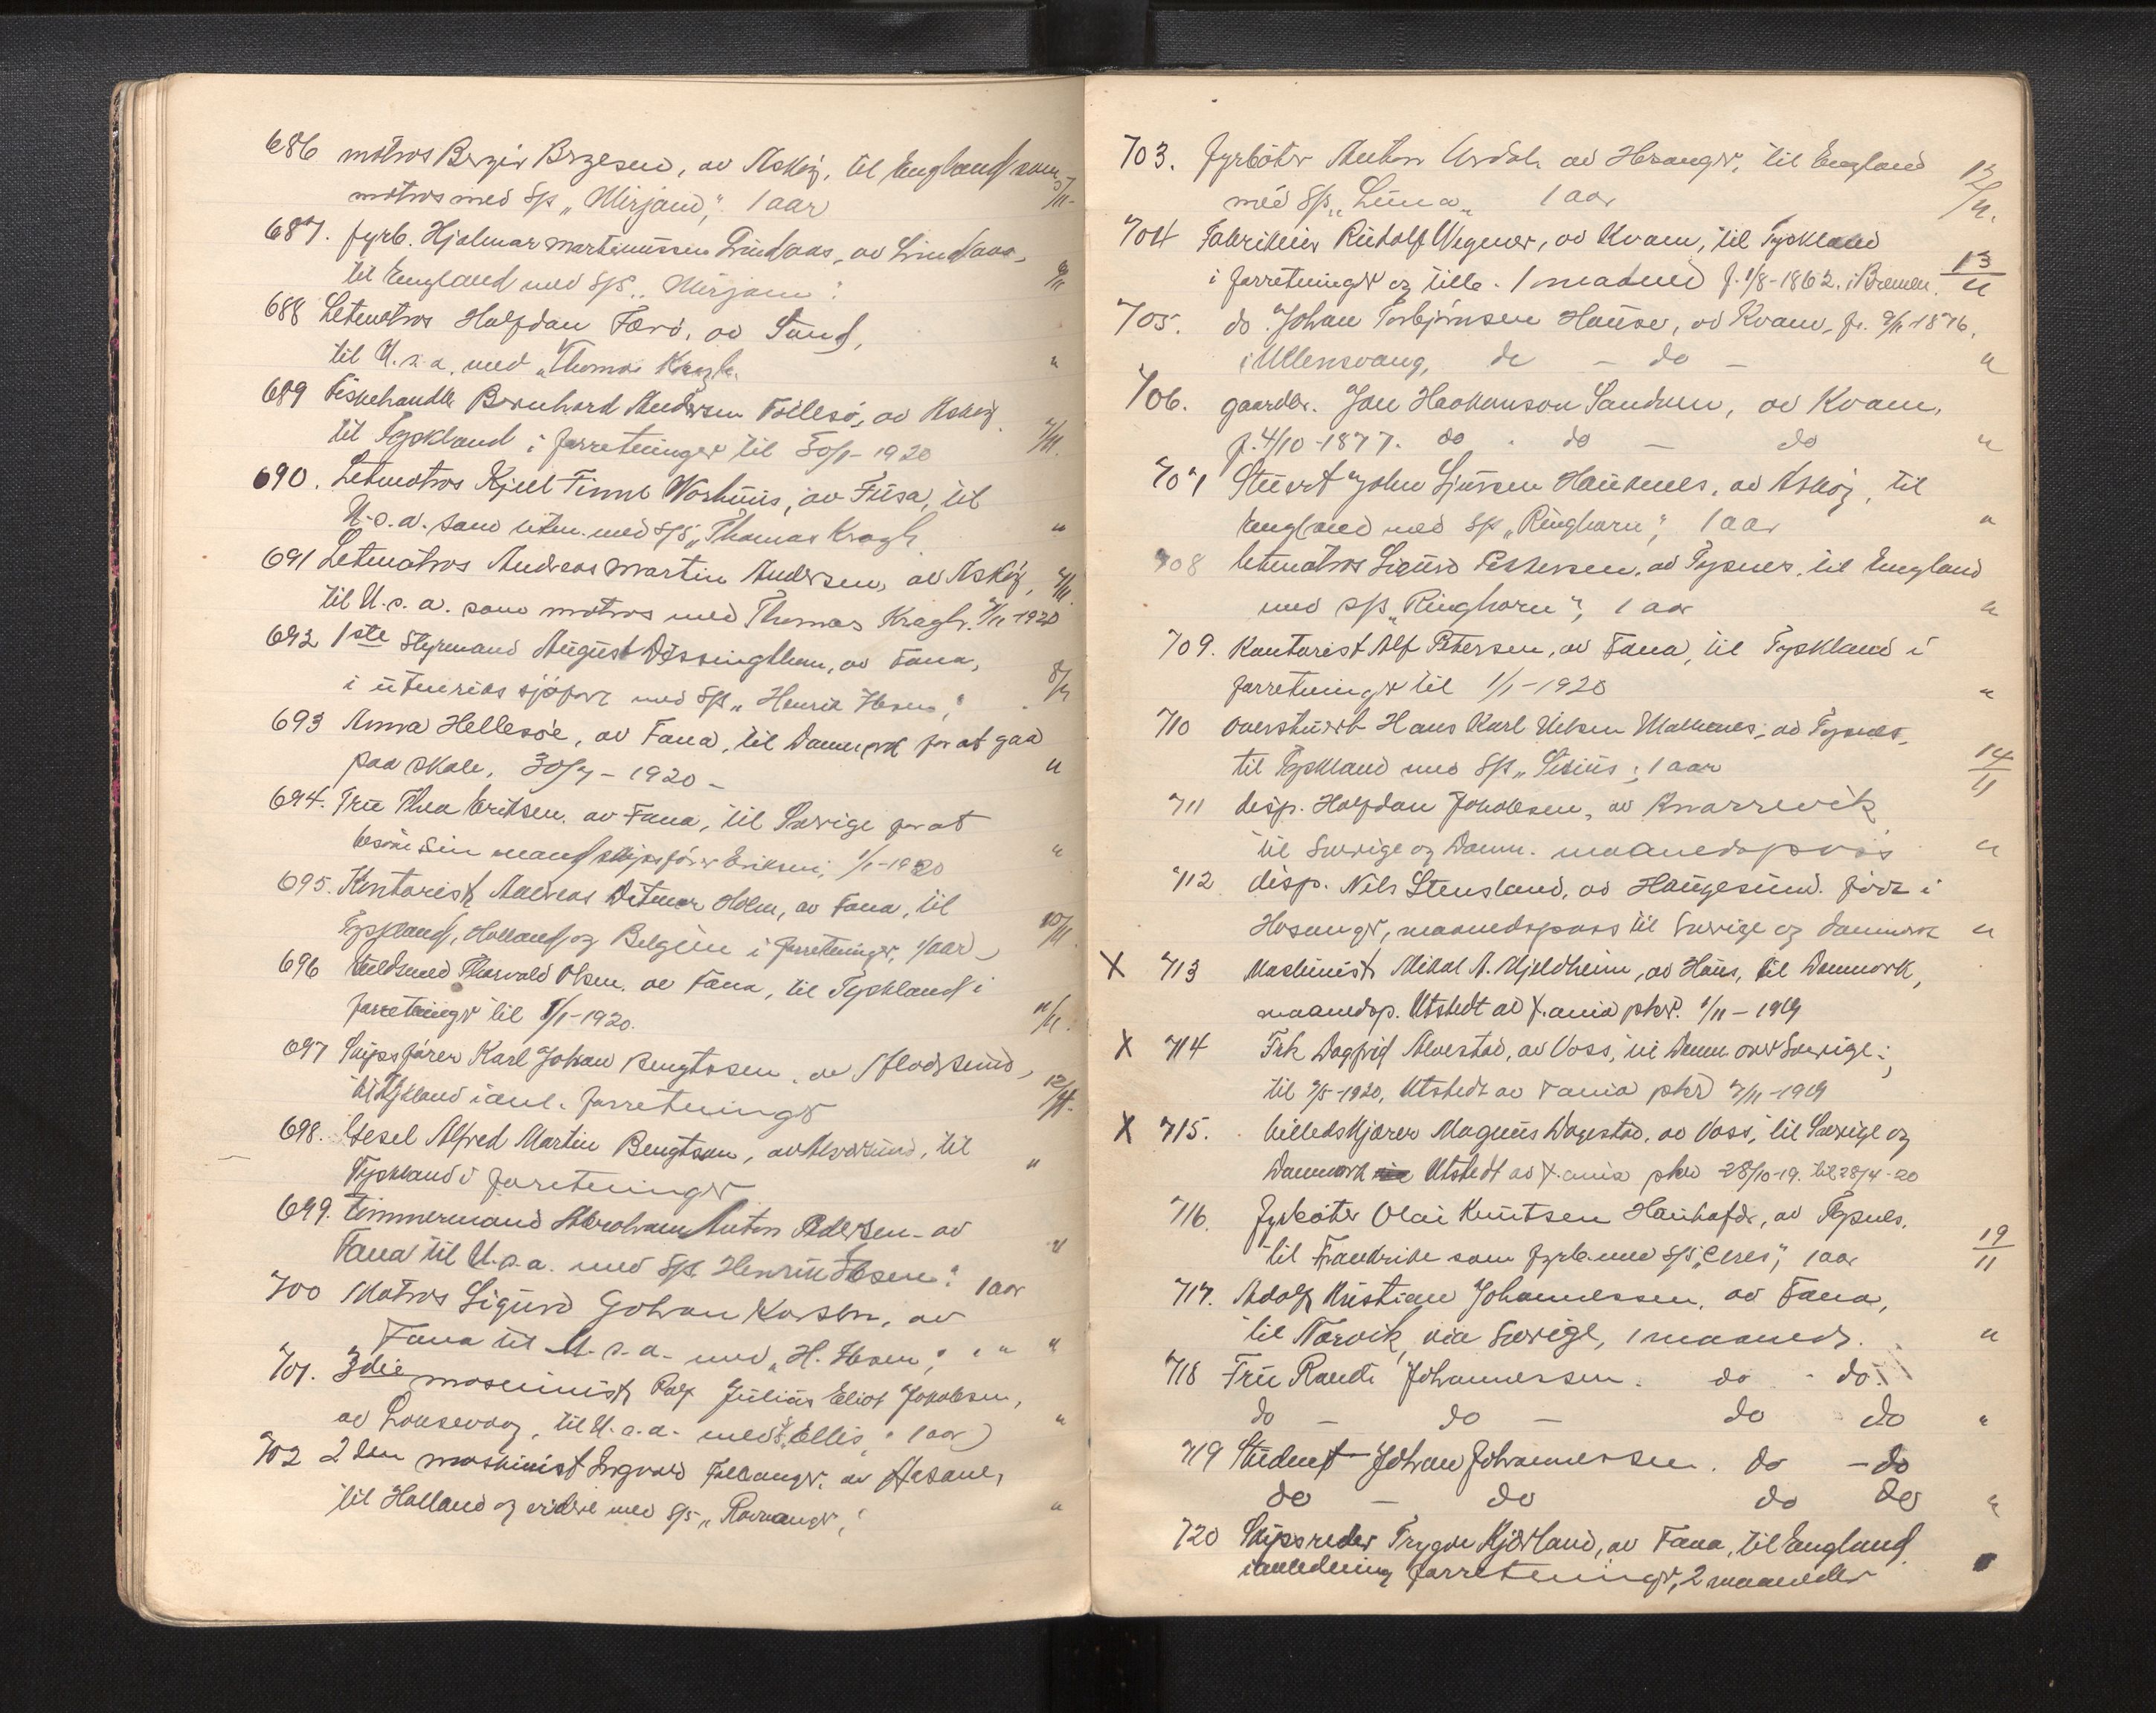 686 matros Berger Brgesen, av Askøy, til England som 5/11
matros med S/s „Mirjam", 1 aar
687. fyrb. Hjalmar Martinussen Lindaas, av Lindaas,
til England med S/s „Mirjam". 6/11
688 Letmatros Halfdan Færö, av Sund,
til U.s.a. med „Thomas Kragh. "
689 Fiskehandler Bernhard Andersen Follesö, av Askøy
til Tyskland i forretninger til 30/1-1920 7/11.
690. Letmatros Kjell Finne Warhuus, av Fusa, til
U.s.a. som med S/s „Thomas Kragh. "
691 Letmatros Andreas Martin Andersen, av Askøy, 7/11
til U.s.a. som matros med Thomas Kragh. 7/11-1920
692 1ste Styrmand August Dössingthun, av Fana,
i utenriks sjöfart med S/s „Henrik Ibsen", 8/11
693 Anna Hellesöe, av Fana, til Danmark for at gaa
paa skole, 30/4-1920 - "
694. Fru Thea Eriksen. av Fana, til Sverige for at
besöke sin mand skipsförer Eriksen, 1/1-1920 "
695. Kontorist Andreas Ditmar Holm, av Fana, til
Tyskland, Holland og Belgien i forretninger, 1 aar 10/11
696 Thorvald Olsen. av Fana, til Tyskland i
forretninger til 1/1-1920. 11/11.
697 Skipsförer Karl Johan Bengtssen, av
til Tyskland i anl. forretninger 12/11.
698. Alfred Martin Bengtson, av Alversund, til
Tyskland i forretninger "
699. Timmermand Abraham Anton Pedersen. av
Fana til U.s.a. med S/s Henrik Ibsen". 1 aar "
700 Matros Sigurd Johan Karsen, av
Fana til U.s.a. med „H. Ibsen", " " "
701. 3die maskinist Rolf Julius Eliot Jakobsen,
av Loksevaag, til U.s.a. med S/s Ellis, 1 aar "
702 2den maskinist Ingvald Follanger. av Hosanger
til Holland og videre med S/s „Ravnanger", "
703. Fyrböter Anton Urdal, av Hosanger, til England 12/11.
med S/s „Luna" 1 aar
704 Fabrikeier Rudolf Wegner, av Kvam, til Tyskland
i forretninger og tilb. 1 maaned f. 1/8-1862. i Bremen. 13/11
705. do. Johan Torbjörnsen Hauso, av Kvam, f. 9/11 1876.
i Ullensvang, do - do - "
706. gaardbr. Jon Haakonson Sandven, av Kvam,
f. 4/10-1877. do . do - do "
707 Stuert John Sjursen Haukenes, av Askøy, til
England med S/s „Ringhorn", 1 aar "
708 Letmatros Sigurd Pettersen, av Tysnes, til England
med s/s „Ringhorn", 1 aar "
709. Kontorist Alf Petersen, av Fana, til Tyskland i
forretninger til 1/1-1920 "
710 Overstuert Hans Karl Nilsen Malkenes, av Tysnes,
til Tyskland med S/s „Sirius", 1 aar 14/11
711 disp. Halfdan Jakobsen, av Knarrevik
til Sverige og Danm. maanedspass "
712 disp. Nils Stensland, av Haugesund. född i
Hosanger, maanedspass til Sverige og Danmark "
X 713 Maskinist Mikal A. Mjeldheim, av Haus, til Danmark,
maanedsp. Utstedt av X.ania pkr. 1/11-1919
X 714 Frk Dagfrid Alvestad, av Voss, til Danm. over Sverige;
til 7/5-1920, Utstedt av X ania pkr 7/11-1919
X 715. Billedskjærer Magnus Dagestad, av Voss, til Sverige og
Danmark Utstedt av X.ania pkr 28/10-19. til 28/4-20
716. Fyrböter Olai Knutsen Haukafær, av Tysnes,
til Frankrike som fyrb. med S/s „Ceres", 1 aar 19/11
717. Adolf Kristian Johannessen, av Fana,
til Narvik, via Sverige, 1 maaned. "
718 Fru Randi Johannessen. do - do.
do - do - do do "
719 Student Johan Johannessen. do - do
do - do do do "
720 Skipsreder Trygve Kjærland, av Fana, til England
i anledning forretninger, 2 maaneder "